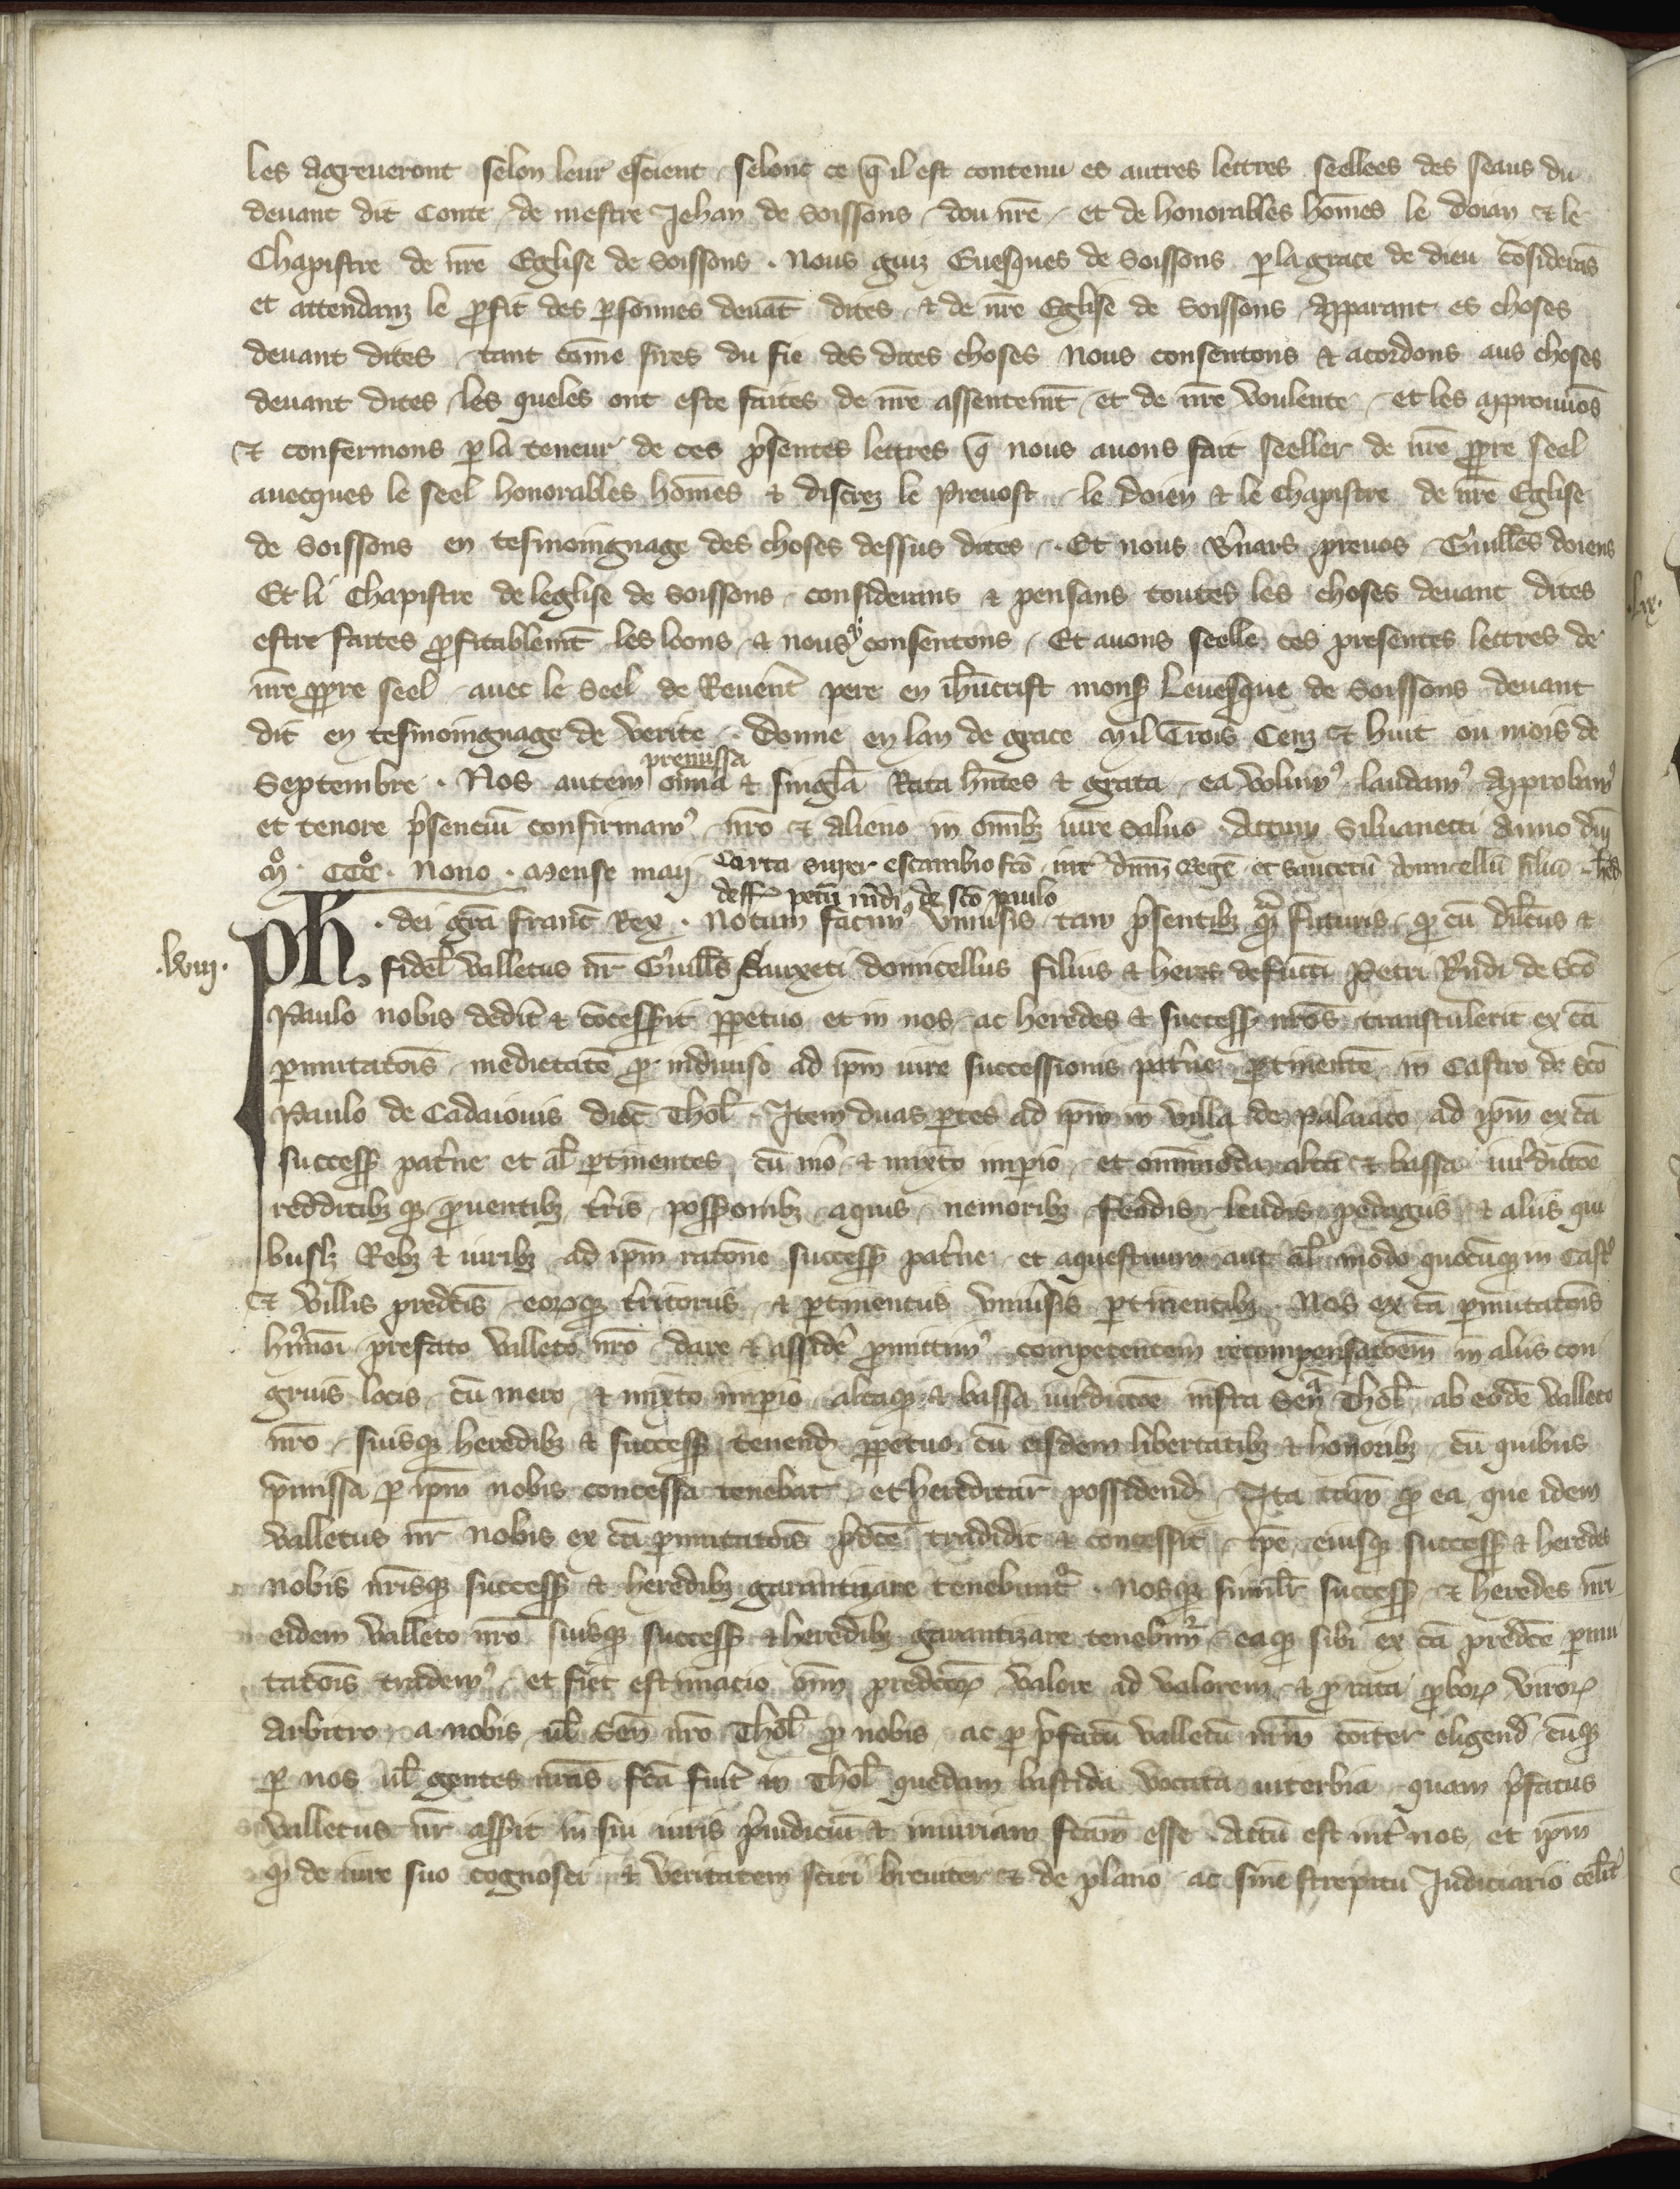 les agreueront selon leur escient selonc ce q̄ il est contenu es autres lettres seellees des seaus du
deuant dit conte de mestre Jehan de soissons dou nr̄e et de honorables hōmes le doian ⁊ le
Chapistre de nr̄e Eglise de soissons . Nous guiz Euesques de soissons ꝑ la grace de dieu cōsiderās
et attendanz le ꝓfit des ꝑsonnes deuāt dites ⁊ de nr̄e Eglise de soissons apparant es choses
deuant dites tant cōme sires du fie des dites choses nous consentons ⁊ acordons aus choses
deuant dites les queles ont este faites de nr̄e assentemt̄ et de nr̄e voulente et les approuuōs
⁊ confermons ꝑ la teneur de ces p̄sentes lettres q̄ nous auons fait seeller de nr̄e ꝓpre seel
auecques le seel honorables hōmes ⁊ discrez le preuost le doien ⁊ le chapistre de nr̄e Eglise
de soissons en tesmoingnage des choses dessus dites . Et nous preuos Guill̄es doiens
Et li Chapistre de leglise de soissons considerans ⁊ pensans toutes les choses deuant dites
estre faites ꝓfitablemt̄ les loons ⁊ nous y consentons . Et auons seelle ces presentes lettres de
nr̄e ꝓpre seel auec le seel de Reuent̄ pere en ih̄ucrist mons̄ leuesque de soissons deuant
dit en tesmoingnage de verite . Donne en lan de grace mil Trois Cenz ⁊ huit ou mois de
premissa
Septembre . Nos autem om̄ia ⁊ singl̄a Rata hn̄tes ⁊ grata ea volumꝰ laudamꝰ approbamꝰ
et tenore p̄senciū confirmamꝰ nr̄o ⁊ alieno in om̄ibꝫ iure saluo . Actum Siluanecti anno dn̄i
mͦ. CCCͦ . Nono . Mense maij Carta super escambio fc̄o int̄ dn̄m Regē et saucetū domicellū filiū ⁊ hēd
deff̄ petri rn̄di de sc̄o paulo
.lviij. Ph . dei gr̄a Franc̄ Rex . Notum facimꝰ vniuersis tam p̄sentibꝫ q̄ȝ futuris ꝙ cū dilc̄us ⁊
fidel̄ valletus nr̄ Guill̄s Sauxeti domicellus filius ⁊ heres defūcti Petri Rn̄di de Sc̄o
Paulo nobis dedit̄ ⁊ cōcesserit ꝑpetuo et in nos ac heredes ⁊ success̄ nr̄os transtulerit ex cā
ꝑmutatōis medietatē ꝓ indiuiso ad ip̄m iure successionis pat̄ne ꝑtinentē in castro de Sc̄o
Paulo de Cadaiouis dioc̄ Thol̄ . Item duas ꝑtes ad ip̄m in villa de Palaiaco ad ip̄m ex cā
success̄ pat̄ne et al̄ ꝑtinentes cū m̄o ⁊ mixto imꝑio et om̄imoda alta ⁊ bassa iur̄dictōe
redditibꝫ qꝫ ꝓuentibꝫ t̄ris poss̄ionibꝫ aquis nemoribꝫ feodis leudis pedagiis ⁊ aliis qui
busꝫ Rebꝫ ⁊ iuribꝫ ad ip̄m ratōne success̄ pat̄ne et aquestuum aut al̄ modo quocūqꝫ in Cast̄
⁊ villis predc̄is eorūqꝫ t̄ritoriis ⁊ ꝑtinentiis vniūsis ꝑtinentibꝫ . Nos ex cā ꝑmutatōis
hmōi prefato valleto nr̄o dare ⁊ assidē ꝓmittimꝰ competentem recompensatōem in aliis con
gruis locis cū mero ⁊ mixto imꝑio altaqꝫ ⁊ bassa iur̄dictōe infra Seneſ̄ Thol̄ ab eodē valleto
nr̄o suisqꝫ heredibꝫ ⁊ success̄ tenend̄ ꝑpetuo cū eisdem libertatibꝫ ⁊ honoribꝫ cū quibus
p̄missa ꝑ ip̄m nobis concessa tenebat et hereditar̄ possidend̄ . Ita tam̄ ꝙ ea que idem
valletus nr̄ nobis ex cā ꝑmutatōis p̄dc̄e tradidit ⁊ concessit ip̄e eiusqꝫ success̄ ⁊ heredes
nobis nr̄isqꝫ success̄ ⁊ heredibꝫ garantizare tenebunt̄ . Nosqꝫ simil̄r success̄ ⁊ heredes nr̄i
eidem valleto nr̄o suisqꝫ success̄ ⁊ heredibꝫ garantizare tenebim̄ eaqꝫ sibi ex cā predc̄e ꝑmu
tatōis trademꝰ et fiet estimacio om̄i predc̄oꝝ valore ad valorem ⁊ ꝓ rata ꝓboꝝ viroꝝ
arbitro a nobis ul̄ Sen̄ nr̄o Thol̄ ꝓ nobis ac ꝑ p̄fatū valletū nr̄m cōiter eligend̄ cūqꝫ
ꝑ nos ul̄ gentes nr̄as fc̄a fuit̄ in Thol̄ quedam bastida vocata viterbia quam p̄fatus
valletus nr̄ ass̄it in sui iuris p̄iudiciū ⁊ iniuriam fc̄am esse . Actū est int̄ nos et ip̄m
ꝙ de iure suo cognosci ⁊ veritatem sciri breuiter ⁊ de plano ac sine strepitu Judiciario cel̄it̄